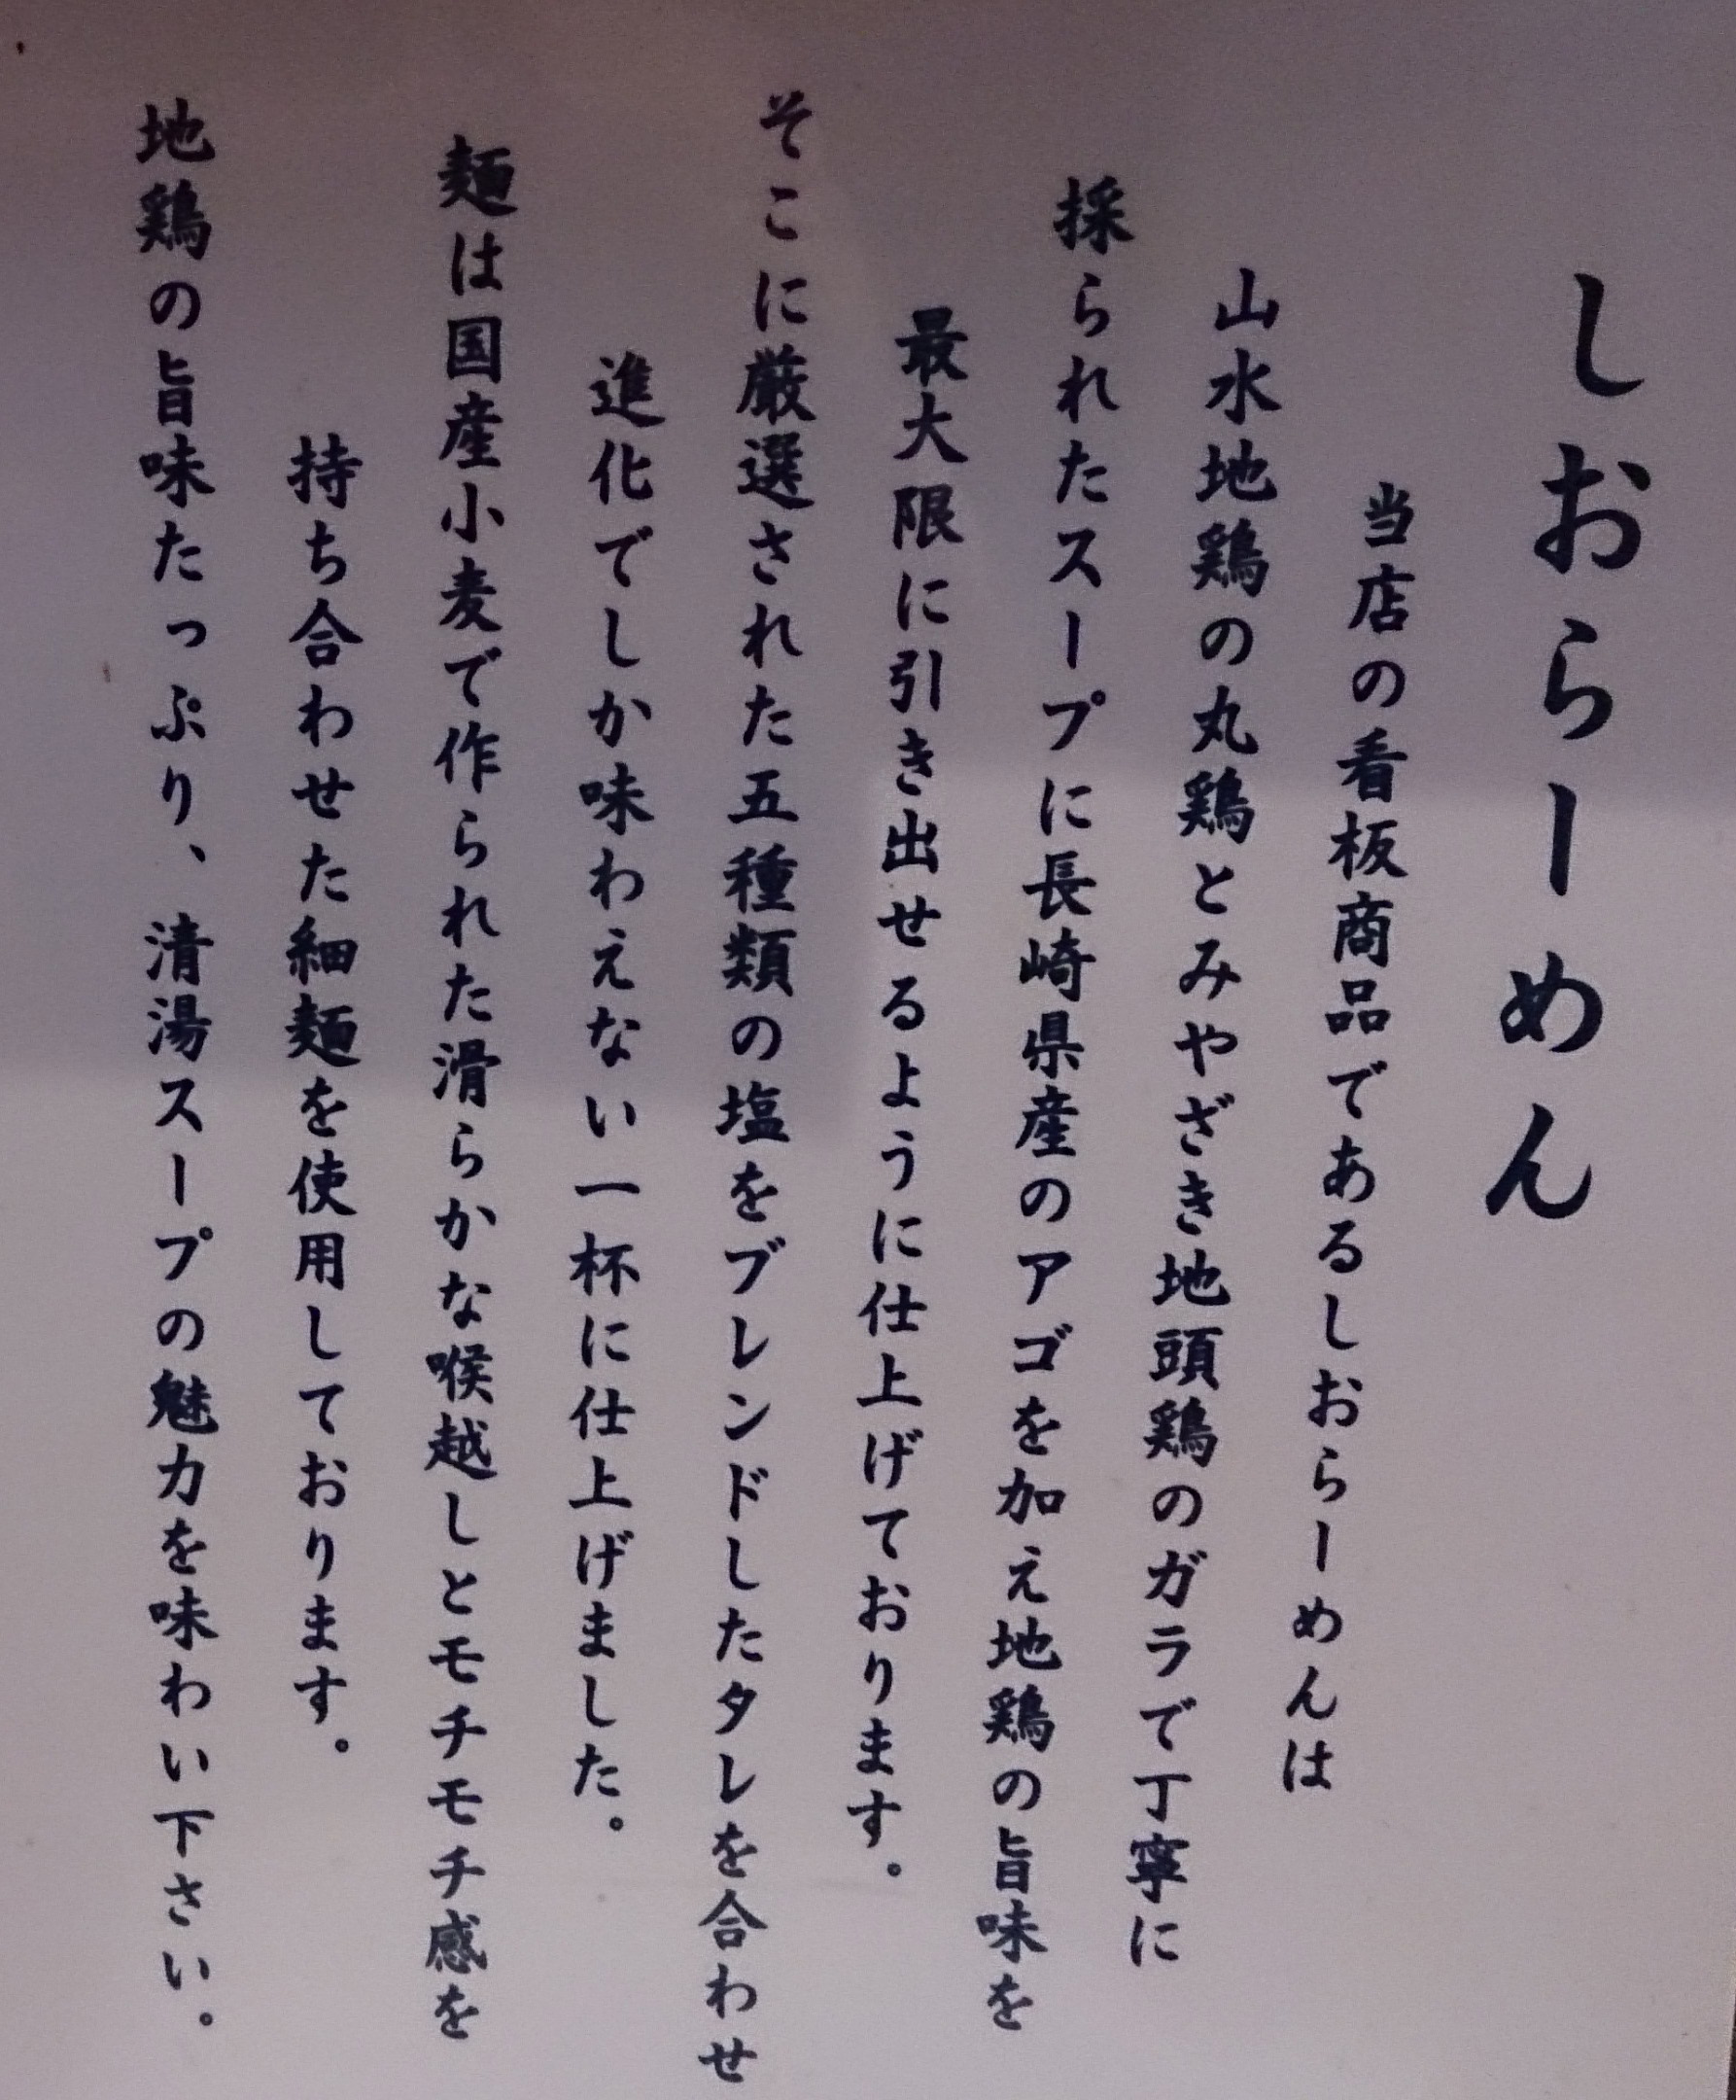 しおらーめん
当店の看板商品であるしおらーめんは
山水地鶏の丸鶏とみやざき地頭鶏のガラで丁寧に
採られたスープに長崎県産のアゴを加え地鶏の旨味を
最大限に引き出せるように仕上げております。
そこに厳選された五種類の塩をブレンドしたタレを合わせ
進化でしか味わえない一杯に仕上げました。
麺は国産小麦で作られた滑らかな喉越しとモチモチ感を
持ち合わせた細麺を使用しております。
地鶏の旨味たっぷり、清湯スープの魅力を味わい下さい。